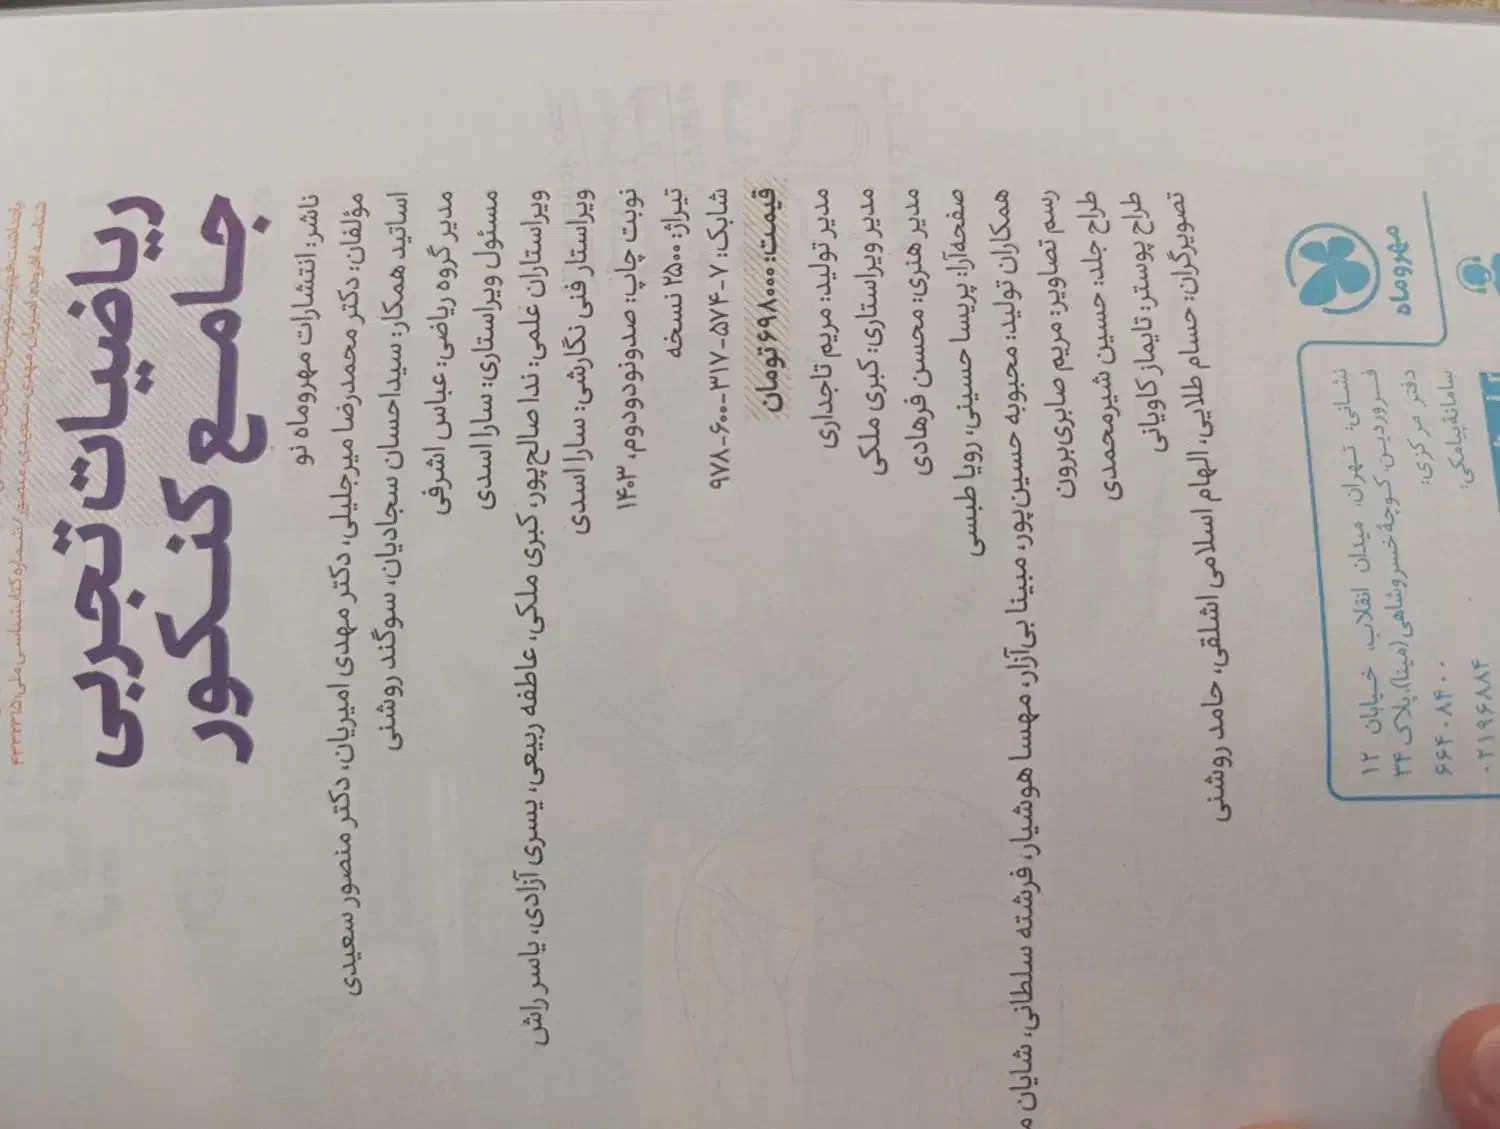 شماره کتابشناسی ملی: ۴۳۳۲۳۱۵
ریاضیات تجربی
جامع کنکور
ناشر: انتشارات مهروماه نو
مؤلفان: دکتر محمدرضا میرجلیلی، دکتر مهدی امیریان، دکتر منصور سعیدی
اساتید همکار: سیداحسان سجادیان، سوگند روشنی
مدیر گروه ریاضی: عباس اشرفی
مسئول ویراستاری: سارا اسدی
ویراستاران علمی: ندا صالح‌پور، کبری ملکی، عاطفه ربیعی، یسری آزادی، یاسر راش
ویراستار فنی نگارشی: سارا اسدی
نوبت چاپ: صدونودودوم، ۱۴۰۳
تیراژ: ۲۵۰۰ نسخه
شابک: ۷-۵۷۴-۳۱۷-۶۰۰-۹۷۸
قیمت: ۶۹۸۰۰۰ تومان
مدیر تولید: مریم تاجداری
مدیر ویراستاری: کبری ملکی
مدیر هنری: محسن فرهادی
صفحه‌آرا: پریسا حسینی، رویا طبسی
همکاران تولید: محبوبه حسین‌پور، مبینا بی‌آزار، مهسا هوشیار، فرشته سلطانی، شایان
رسم تصاویر: مریم صابری‌برون
طراح جلد: حسین شیرمحمدی
طراح پوستر: تایماز کاویانی
تصویرگران: حسام طلایی، الهام اسلامی اشلقی، حامد روشنی
مهروماه
نشانی: تهران، میدان انقلاب، خیابان ۱۲
فروردین، کوچهٔ خسروشاهی (مینا)، پلاک ۳۴
دفتر مرکزی: ۶۶۴۰۸۴۰۰
سامانهٔ پیامکی: ۰۲۱۹۶۸۸۴